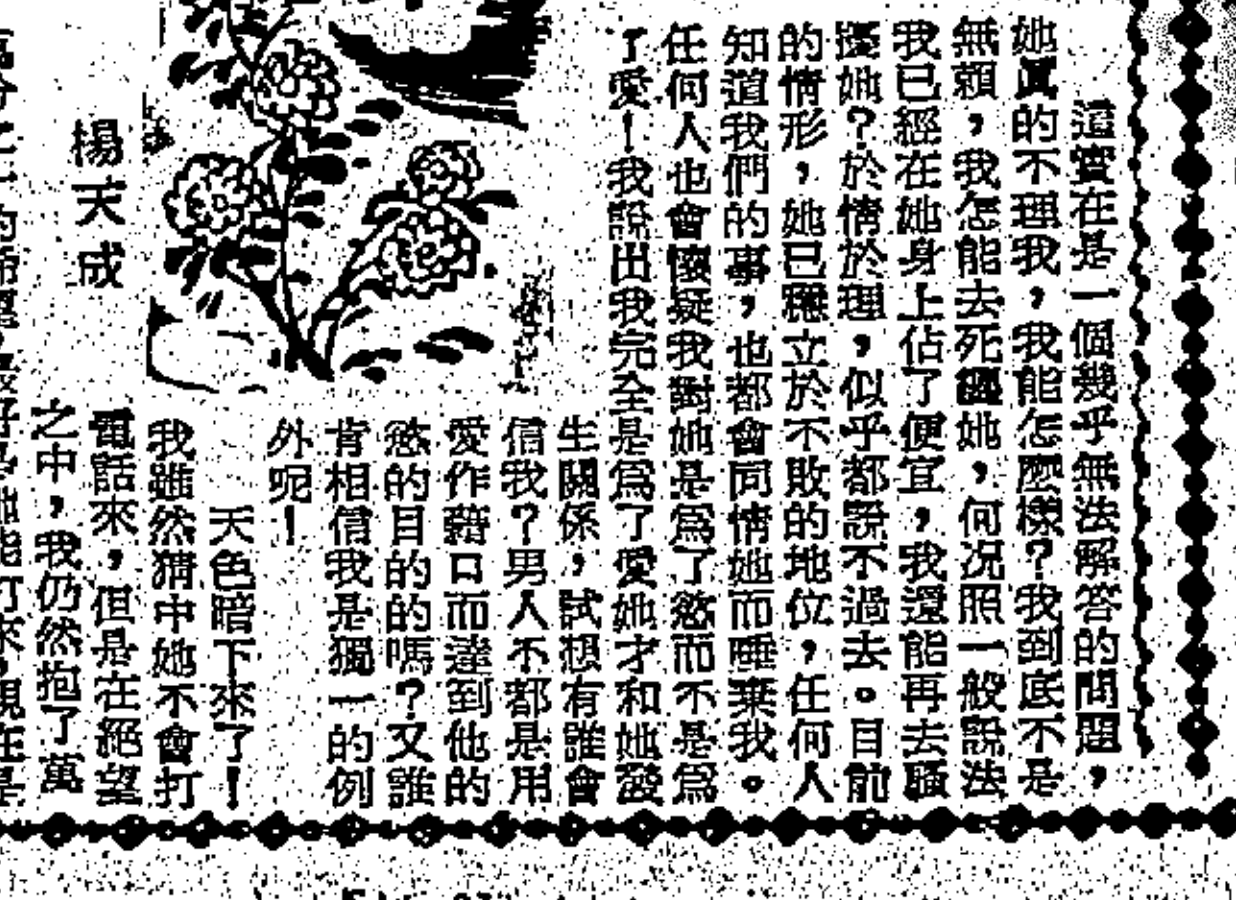 這實在是一個幾乎無法解答的問題，
她眞的不理我，我能怎麼樣？我到底不是
無賴，我怎能去死纒她，何况照一般說法
我已經在她身上佔了便宜，我還能再去騷
擾她？於情於理，似乎都說不過去。目前
的情形，她已雖立於不敗的地位，任何人
知道我們的事，也都會同情她而唾棄我。
任何人也會懷疑我對她是爲了慾而不是爲
了愛！我說出我完全是爲了愛她才和她發
生關係，試想有誰會
信我？男人不都是用
愛作藉口而達到他的
慾的目的的嗎？又誰
肯相信我是獨一的例
外呢！
天色暗下來了！
我雖然猜中她不會打
電話來，但是在絕望
之中，我仍然抱了萬
楊天成